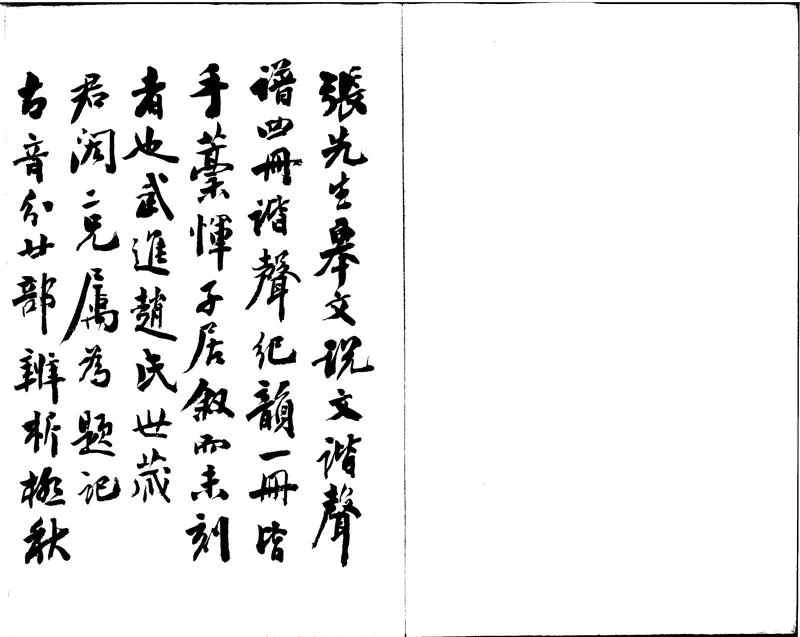 張先生皋文說文諧聲
譜四冊諧聲紀韻一冊皆
手藁惲子居叙而未刻
者也武進趙氏世藏
君閎二兄屬為題記
古音分廿部辨析極秋